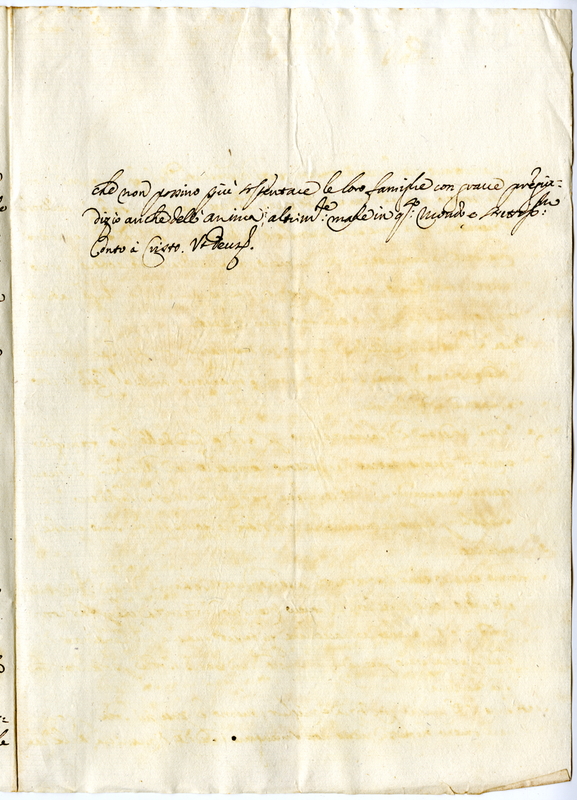 che non possino più sostentare le loro famiglie con grave pregiu-
dizio anche dell'anime; altrim:te male in q:o Mondo, e
Conto à Cristo. Ut Deus